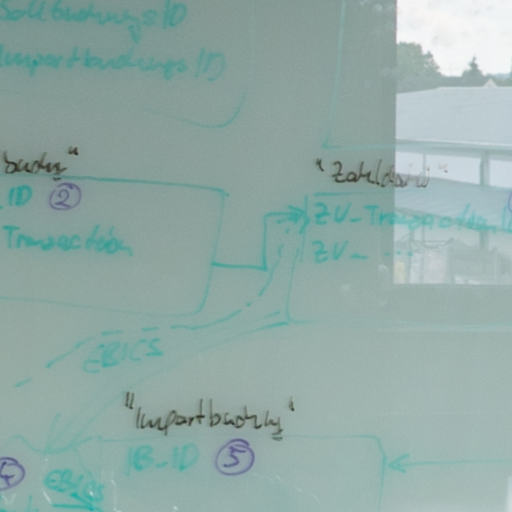 SollbuchungsID
ImportbuchungsID
buchg"
_ID ②
Transaction
"Zahldatei"
ZV-Transaction_ID
ZV- ...
EBICS
"Importbuchung"
IB_ID ⑤
EBICS